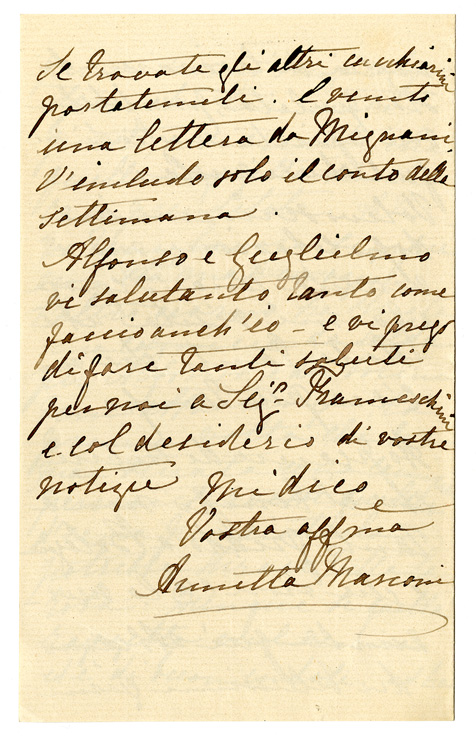 Se trovate gli altri cucchiarini
portatemeli. È venuto
una lettera da Mignani.
V'includo solo il conto della
settimana.
Alfonso e Guglielmo
vi salutanto tanto come
faccio anch'io – e vi prego
di fare tanti saluti
per noi a Sigr.
e col desiderio di vostre
notizie mi dico
Vostra affma
Annetta Marconi